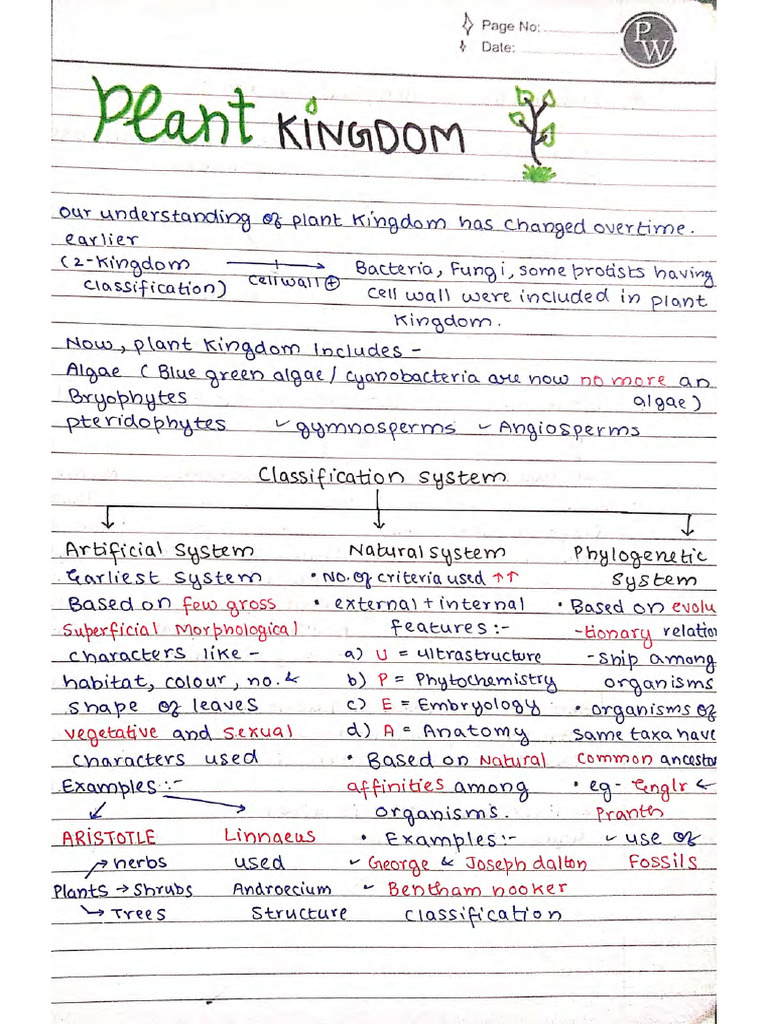 Page No:
Date:
PW
Plant KINGDOM
our understanding of plant Kingdom has changed overtime.
earlier
(2-Kingdom classification) cell wall + Bacteria, Fungi, some protists having
cell wall were included in plant
Kingdom.
Now, plant Kingdom includes -
Algae (Blue green algae / cyanobacteria are now no more an
Bryophytes algae)
pteridophytes ✓ gymnosperms ✓ Angiosperms
Classification system
Artificial System
Earliest system
Based on few gross
Superficial Morphological
characters like -
habitat, colour, no. &
shape of leaves
vegetative and sexual
characters used
Examples :-
ARISTOTLE
Plants → herbs
→ Shrubs
→ Trees
Linnaeus
used
Androecium
Structure
Natural system
• No. of criteria used ↑↑
• external + internal
features :-
a) U = ultrastructure
b) P = Phytochemistry
c) E = Embryology
d) A = Anatomy
• Based on Natural
affinities among
organisms.
• Examples :-
✓ George & Joseph dalton
✓ Bentham hooker
classification
Phylogenetic
System
• Based on evolu
-tionary relation
-ship among
organisms
• organisms of
same taxa have
common ancestor
• eg- Englr &
Pranth
✓ use of
Fossils